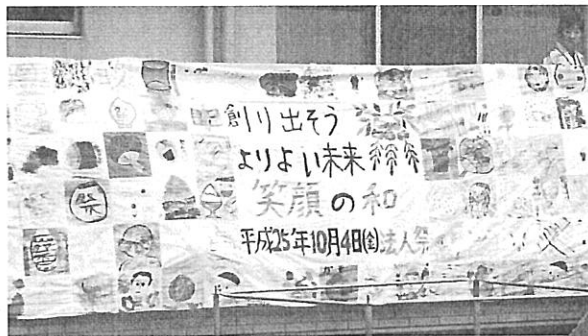 創り出そう
よりよい未来
笑顔の和
平成25年10月4日(金)法人祭
祭